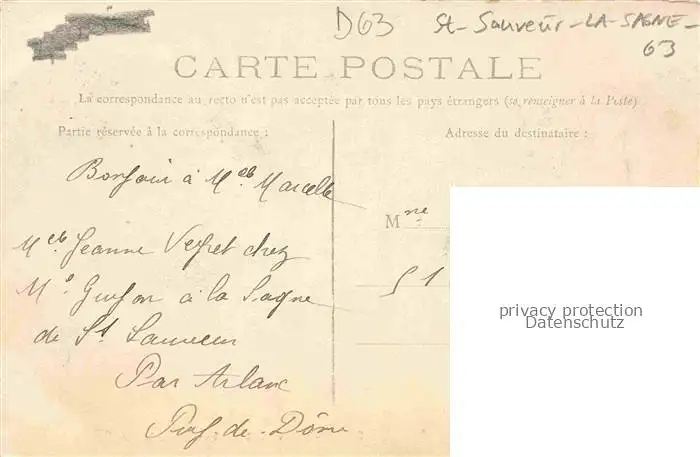 D63
St-Sauveur-LA-SAGNE-
63
CARTE POSTALE
La correspondance au recto n'est pas acceptée par tous les pays étrangers (se renseigner à la Poste)
Partie réservée à la correspondance :
Adresse du destinataire :
Bonjour à Melle Marcelle
Melle Jeanne Veyret chez
à la Sagne
de St Sauveur
Par Arlanc
Puy-de-Dôme
Mme
51
privacy protection
Datenschutz